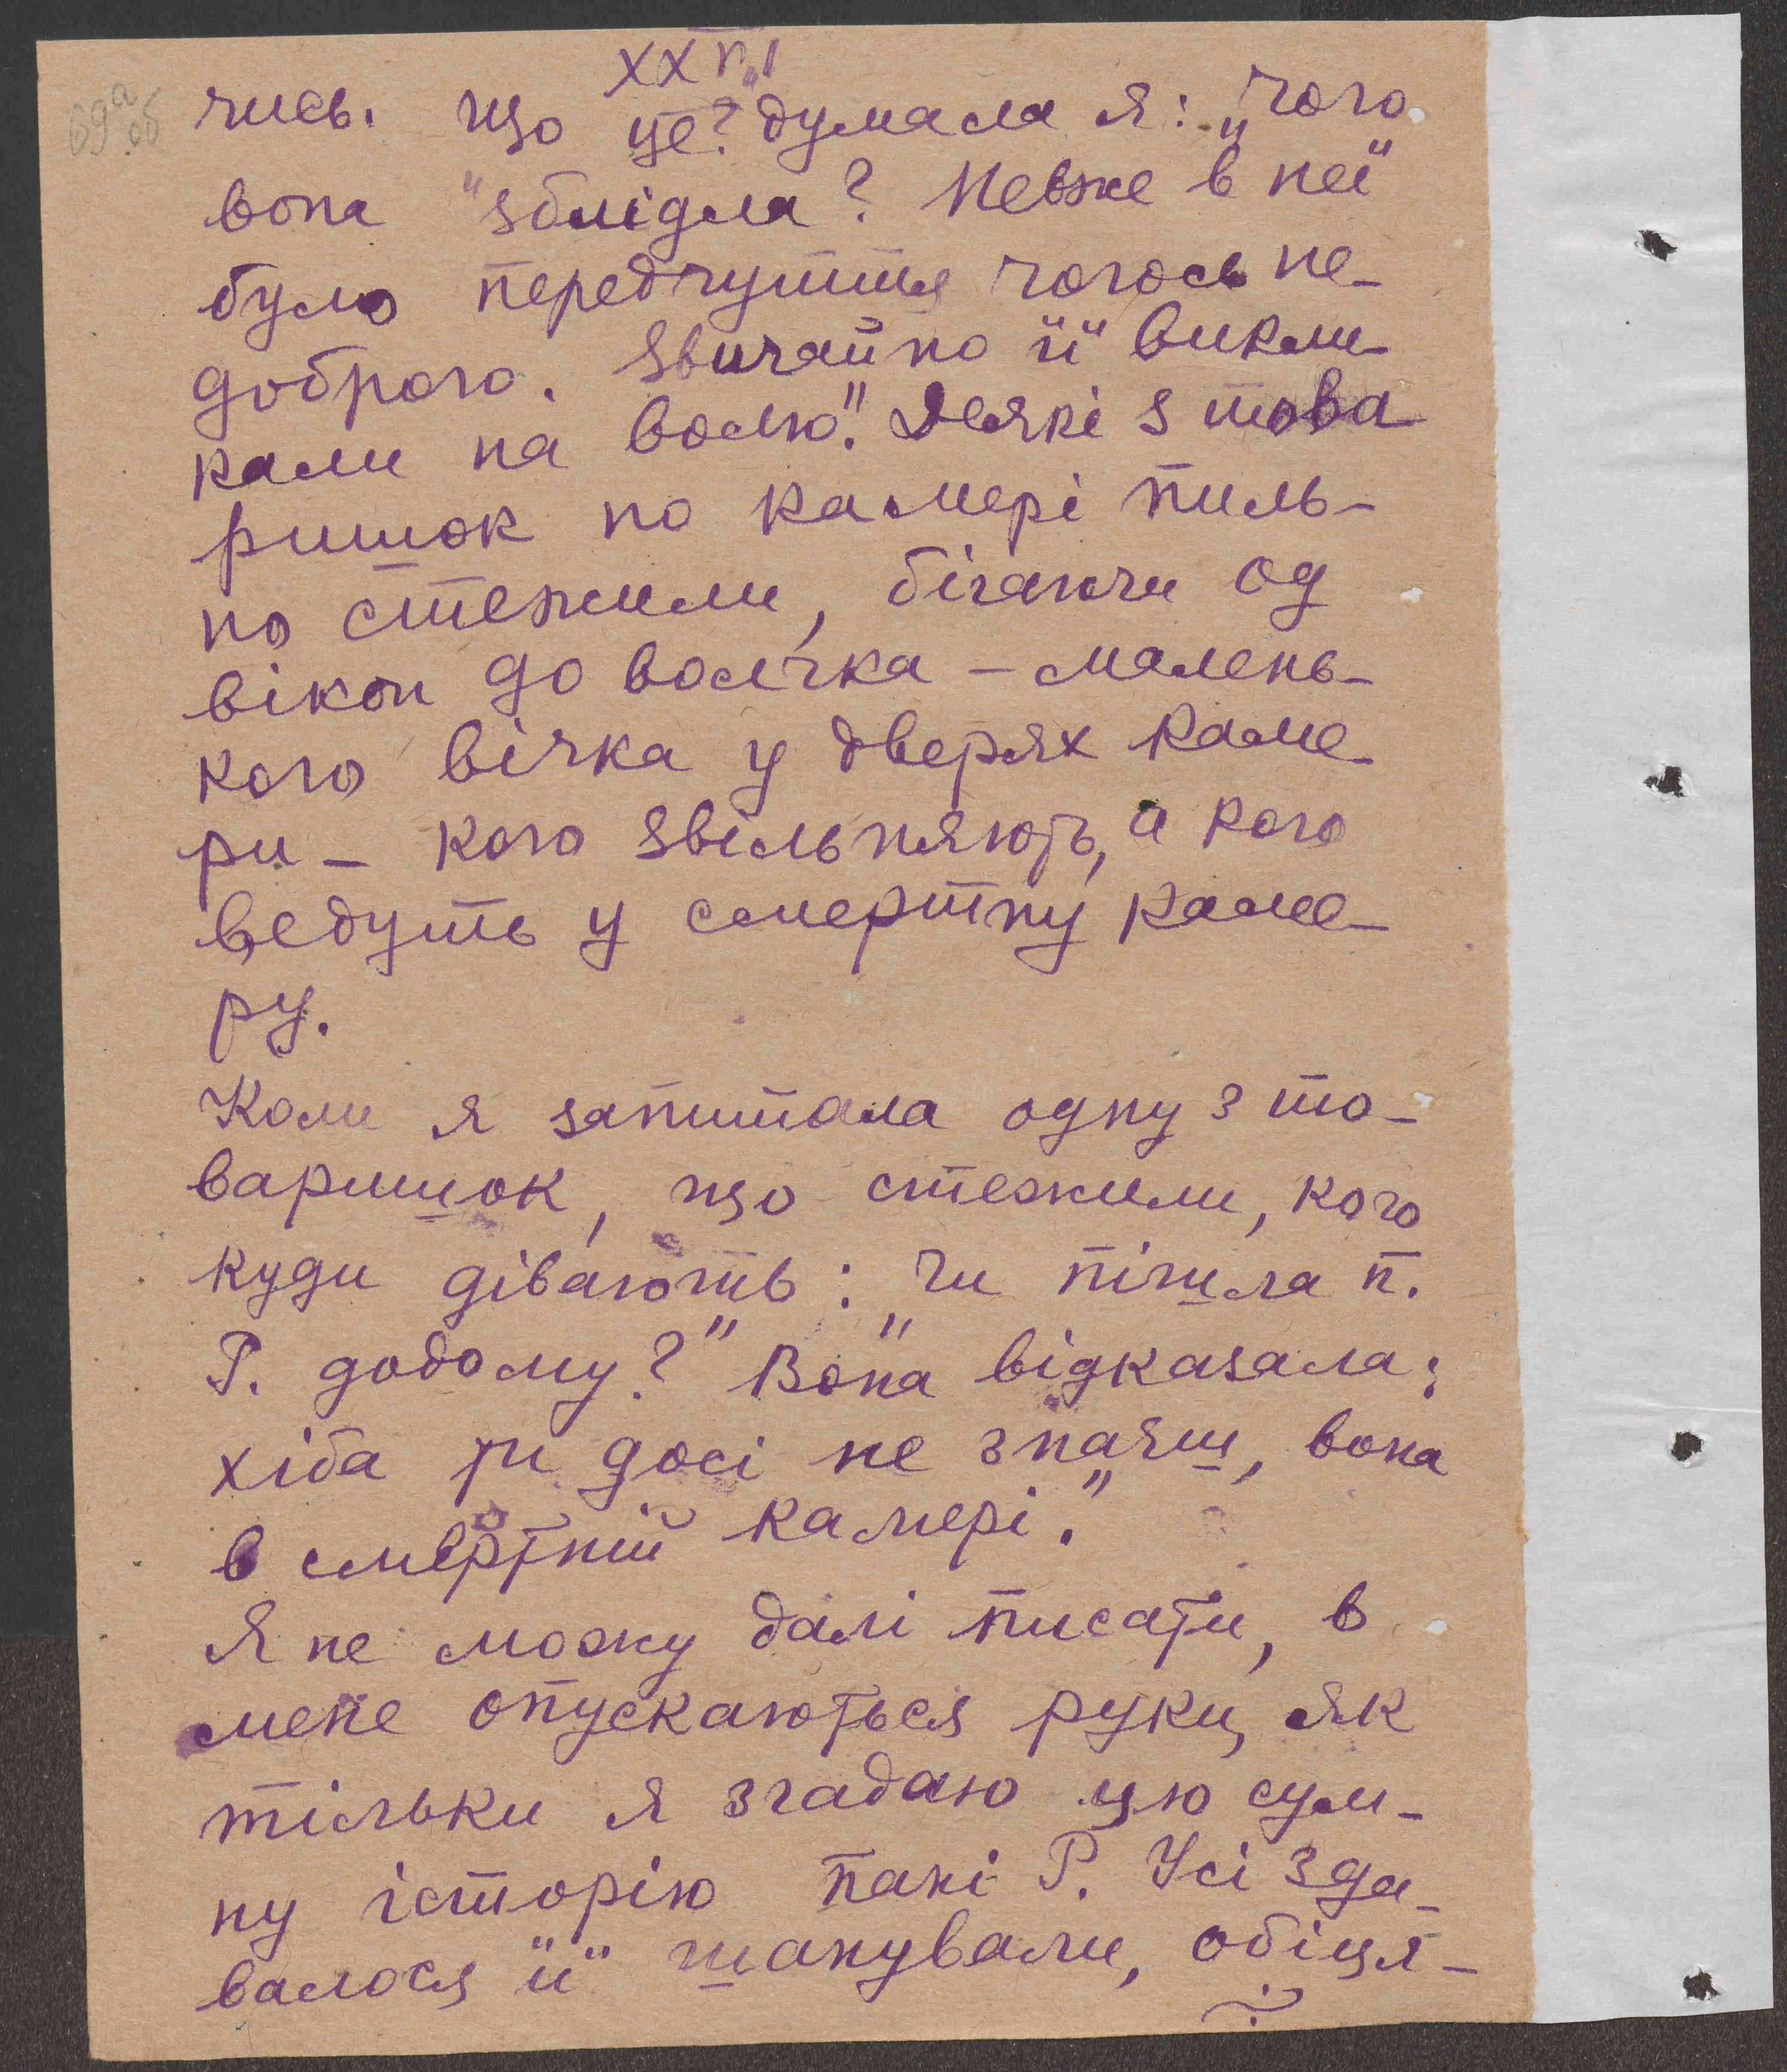 XXVI
69а об
чись. Що це? думала я: „чого
вона зблідла? Невже в неї
було передчуття чогось не-
доброго. Звичайно її викли-
кали на волю." Деякі з това-
ришок по камері пиль-
но стежили, бігаючи од
вікон до волчка – малень-
кого вічка у дверях каме-
ри – кого звільняють, а кого
ведуть у смертну каме-
ру.
Коли я запитала одну з то-
варишок, що стежили, кого
куди дівають: „Чи пішла п.
Р. додому?" Вона відказала:
„хіба ти досі не знаяш, вона
в смертній камері."
Я не можу далі писати, в
мене опускаються руки, як
тільки я згадаю цю сум-
ну історію пані Р. Усі зда-
валося її шанували, обіця-